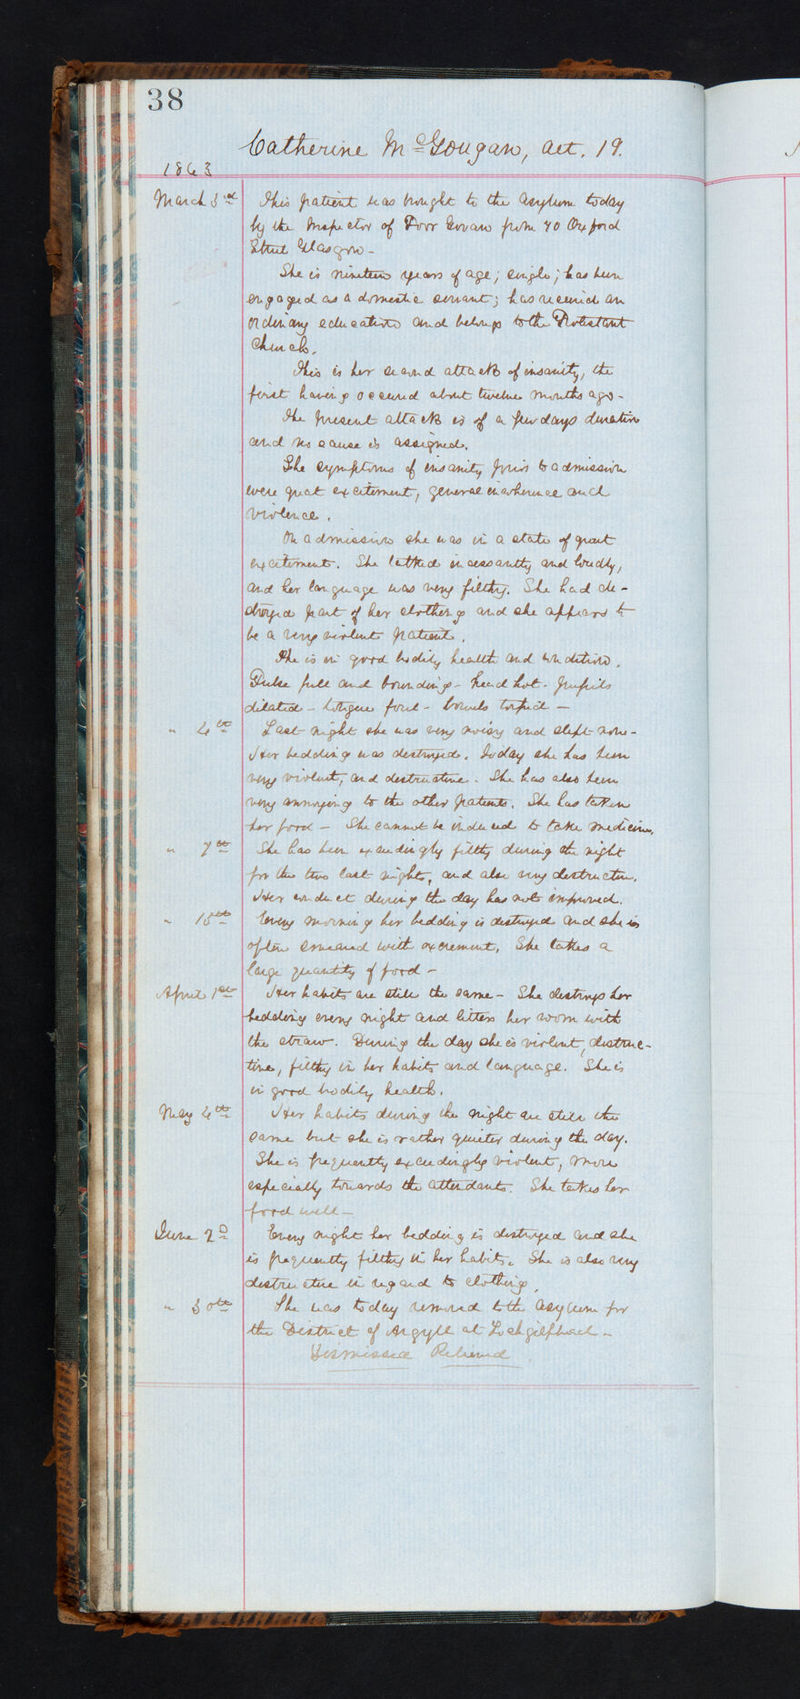 38
Catherine McGougan, aet. 19.
1863
March 3rd This patient was brought to the Asylum today
by the Inspector of Poor Govan from 70 Oxford
Street Glasgow -
She is nineteen years of age; single; has been
engaged as a domestic servant; has received an
ordinary education and belongs to the Protestant
Church.
This is her second attack of insanity, the
first having occured about twelve months ago -
The present attack is of a few days duration
and no cause is assigned.
The symptoms of insanity prior to admission
were great excitement, general incoherence and
violence.
On admission she was in a state of great
excitement. She talked incessantly and loudly,
and her language was very filthy. She had de-
stroyed part of her clothing and she appears to
be a very violent patient.
She is in good bodily health and condition.
Pulse full and bounding - head hot - pupils
dilated - tongue foul - bowels torpid -
" 4th Last night she was very noisy and slept none -
Her bedding was destroyed. Today she has been
very violent, and destructive. She has also been
very annoying to the other patients. She has taken
her food - She cannot be induced to take medicine.
" 7th She has been exceedingly filthy during the night
for the two last nights, and also very destructive.
Her conduct during the day has not improved.
" 15th Every morning her bedding is destroyed and she is
often smeared with excrement. She takes a
large quantity of food -
April 1st Her habits are still the same - She destroys her
bedding every night and litters her room with
the straw. During the day she is violent, destruc-
tive, filthy in her habits and language. She is
in good bodily health.
May 4th Her habits during the night are still the
same but she is rather quieter during the day.
She is frequently exceedingly violent, more
especially towards the attendants. She takes her
food well -
June 2d Every night her bedding is destroyed and she
is frequently filthy in her habits. She is also very
destructive in regard to clothing.
" 30th She was today removed to the asylum for
the District of Argyll at Lochgilphead -
Dismissed Relieved